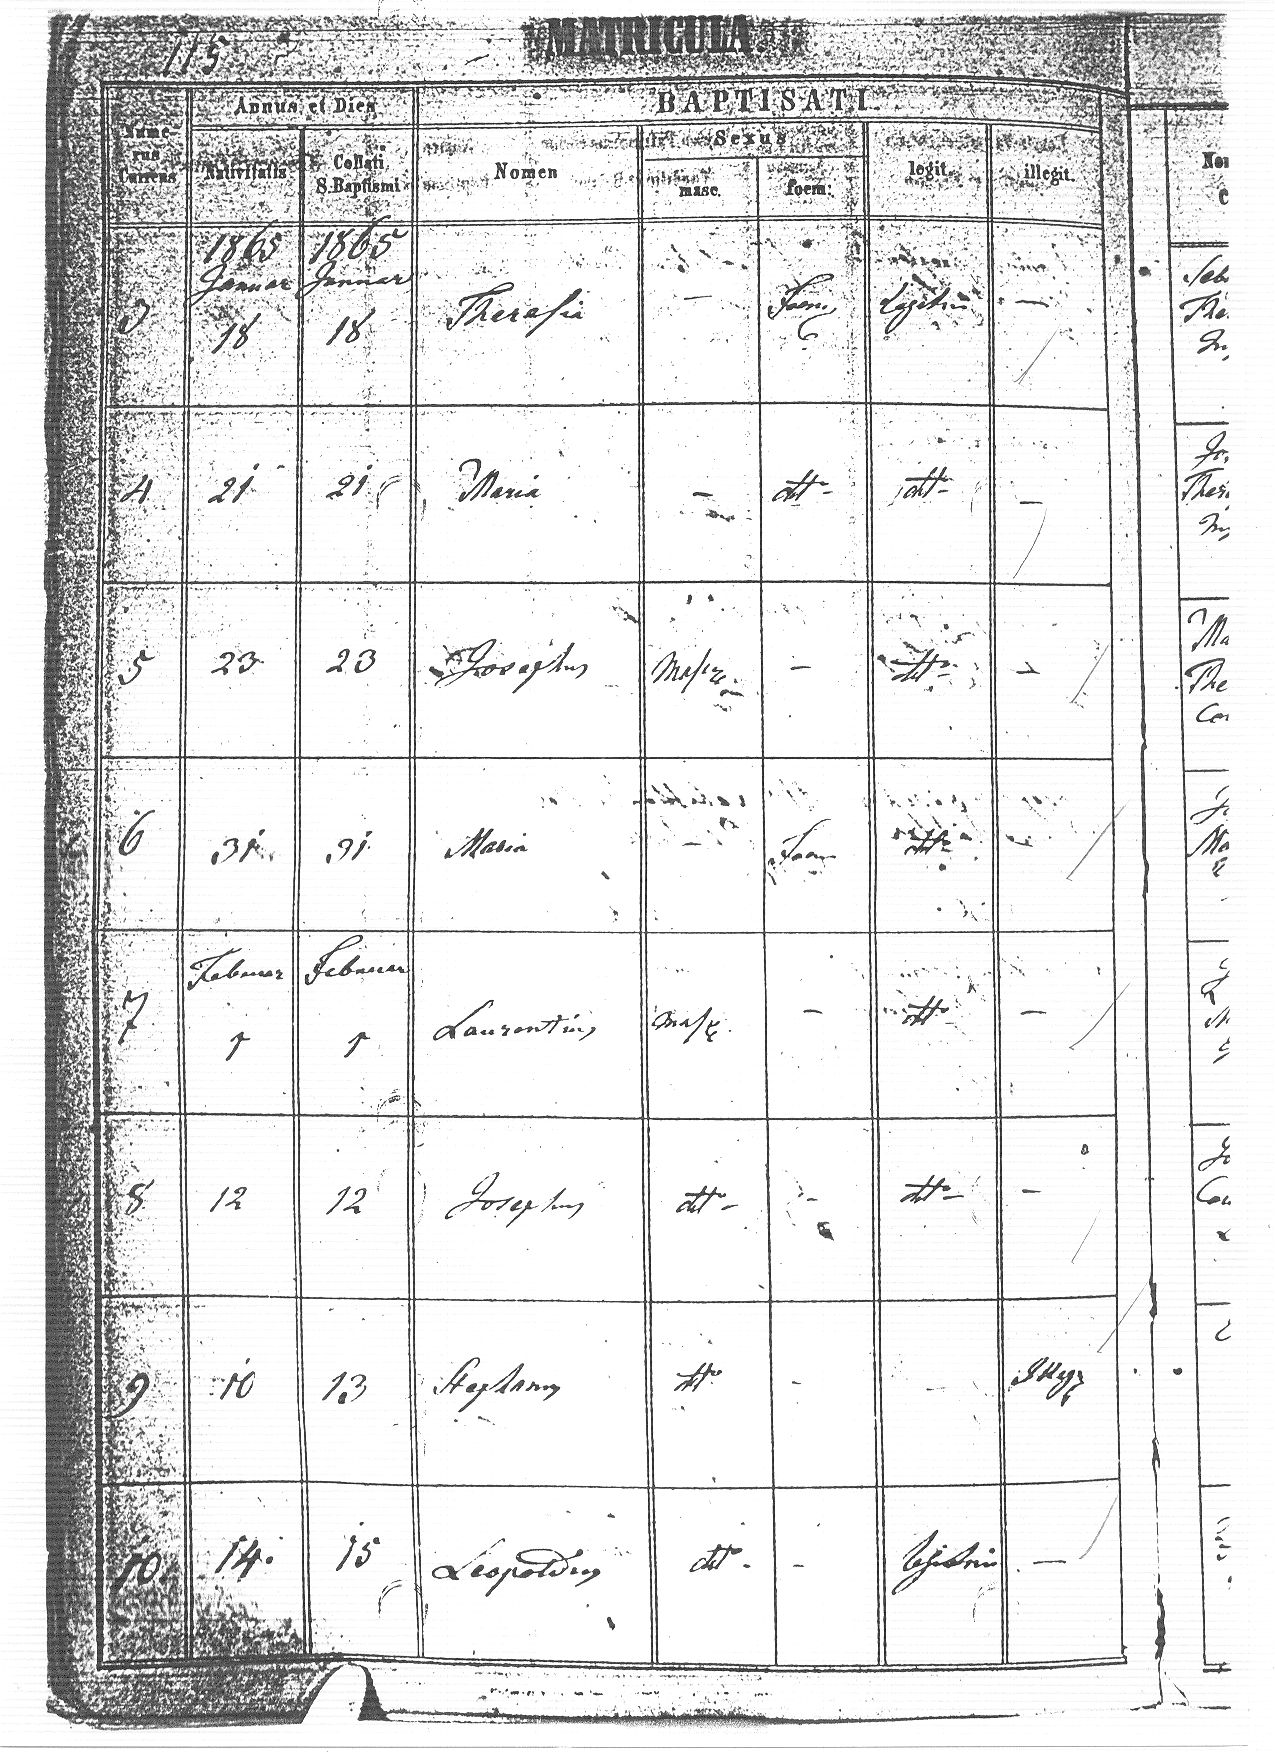 115
MATRICULA.
Nume-
rus
Currens
Annus et Dies
Nativitatis
Collati
S. Baptismi
BAPTISATI
Nomen
Sexus
masc.
foem:
legit.
illegit.
3
1865
Januar
18
1865
Januar
18
Therasia
—
Foem
—
4
21
21
Maria
—
dtt-
dtt-
—
5
23
23
Josephus
Masc.
—
dtt-
—
6
31
31
Maria
—
Foem
dtt-
—
7
Februar
Februar
Laurentius
Masc.
—
dtt-
—
8
12
12
Josephus
dtt-
—
dtt-
—
9
10
13
Stephanus
dtt
-
-
Illeg
10.
14.
15
Leopoldus
dtt-
-
—